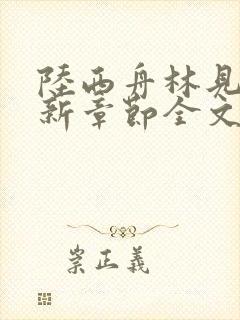 陸西舟林見
新章節全文
崇正義